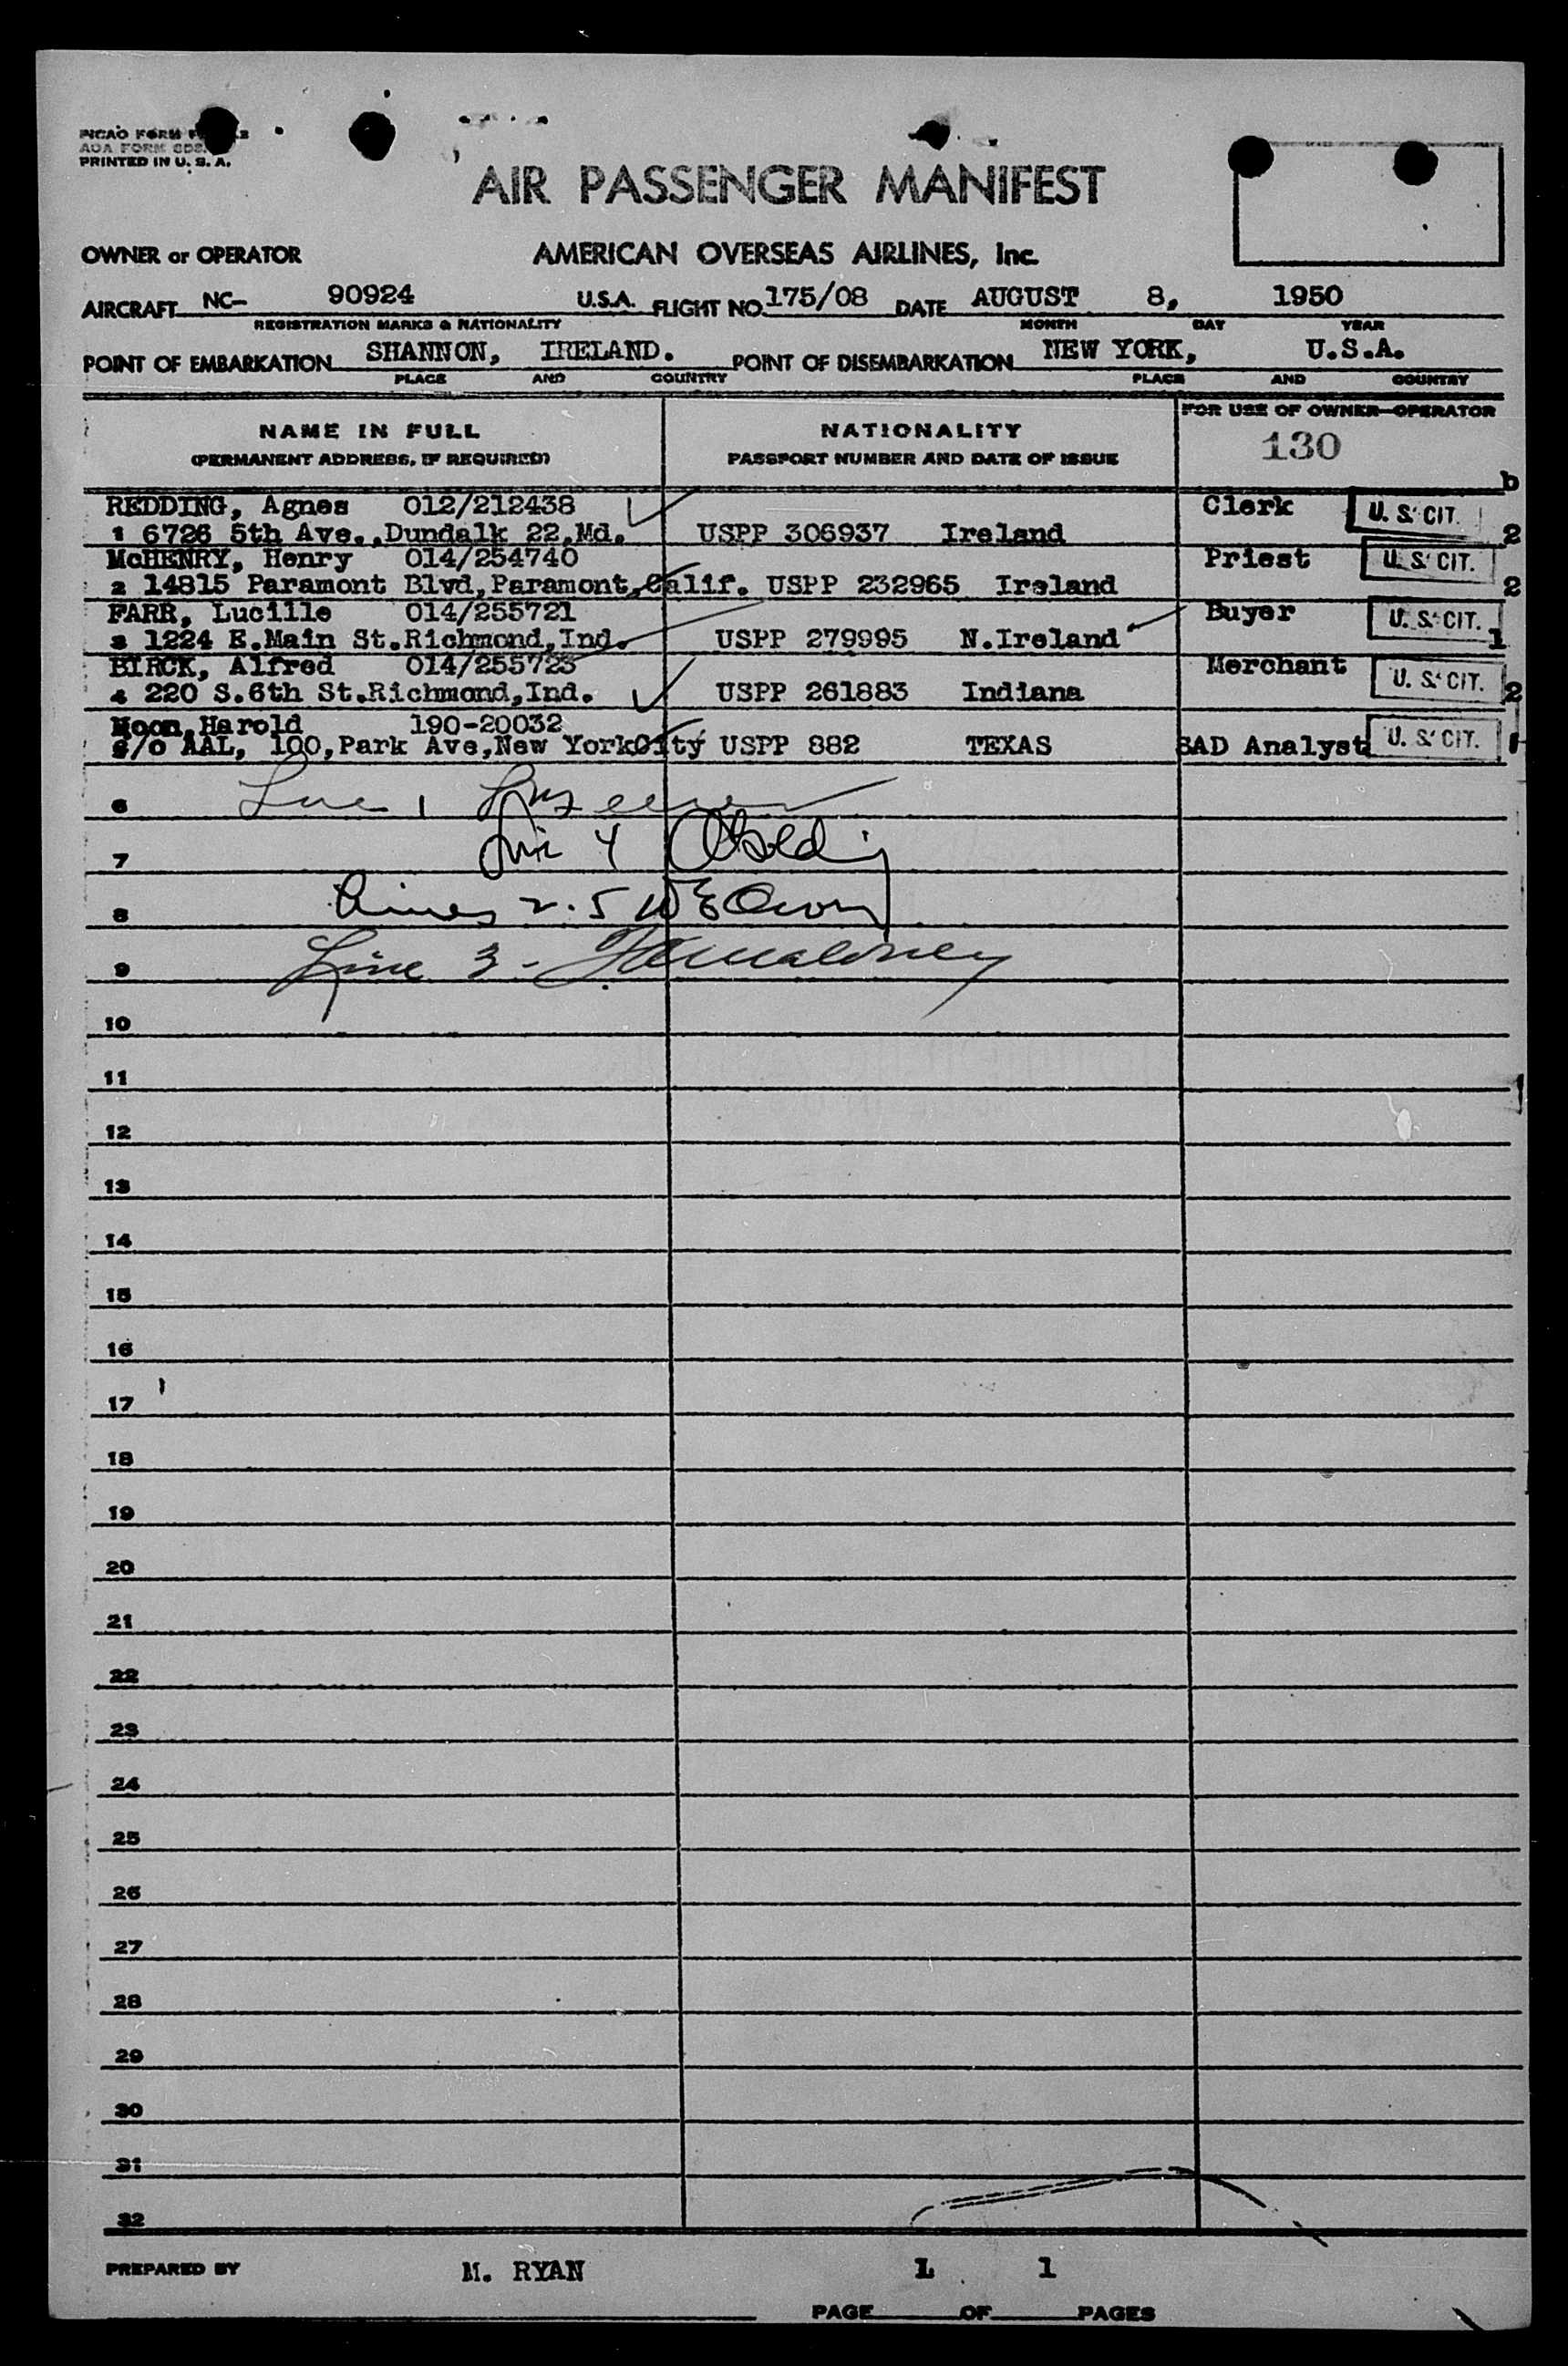 PRINTED IN U. S. A.
AIR PASSENGER MANIFEST
OWNER or OPERATOR AMERICAN OVERSEAS AIRLINES, Inc.
AIRCRAFT NC- 90924 U.S.A. FLIGHT NO. 175/08 DATE AUGUST 8, 1950
REGISTRATION MARKS & NATIONALITY MONTH DAY YEAR
POINT OF EMBARKATION SHANNON, IRELAND. POINT OF DISEMBARKATION NEW YORK, U.S.A.
PLACE AND COUNTRY PLACE AND COUNTRY
FOR USE OF OWNER-OPERATOR
NAME IN FULL NATIONALITY 130
(PERMANENT ADDRESS, IF REQUIRED) PASSPORT NUMBER AND DATE OF ISSUE
b
REDDING, Agnes 012/212438 Clerk U. S. CIT.
1 6726 5th Ave.,Dundalk 22,Md. USPP 306937 Ireland 2
McHENRY, Henry 014/254740 Priest U. S. CIT.
2 14815 Paramont Blvd,Paramont,Calif. USPP 232965 Ireland 2
FARR, Lucille 014/255721 Buyer U. S. CIT.
3 1224 E.Main St.Richmond,Ind. USPP 279995 N.Ireland 1
BIRCK, Alfred 014/255723 Merchant U. S. CIT.
4 220 S.6th St.Richmond,Ind. USPP 261883 Indiana 2
Moon,Harold 190-20032
c/o AAL, 100,Park Ave,New YorkCity USPP 882 TEXAS SAD Analyst U. S. CIT. 1
6 Line 1
7 Line 4
8 Lines 2.5
9 Line 3 -
10
11
12
13
14
15
16
17
18
19
20
21
22
23
24
25
26
27
28
29
30
31
32
PREPARED BY M. RYAN 1 1
PAGE OF PAGES